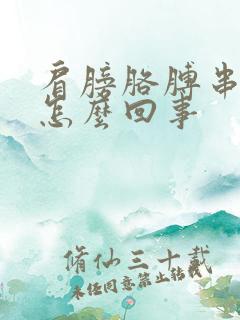 肩膀胳膊串
怎麼回事
脩仙三十載
未经同意禁止转载